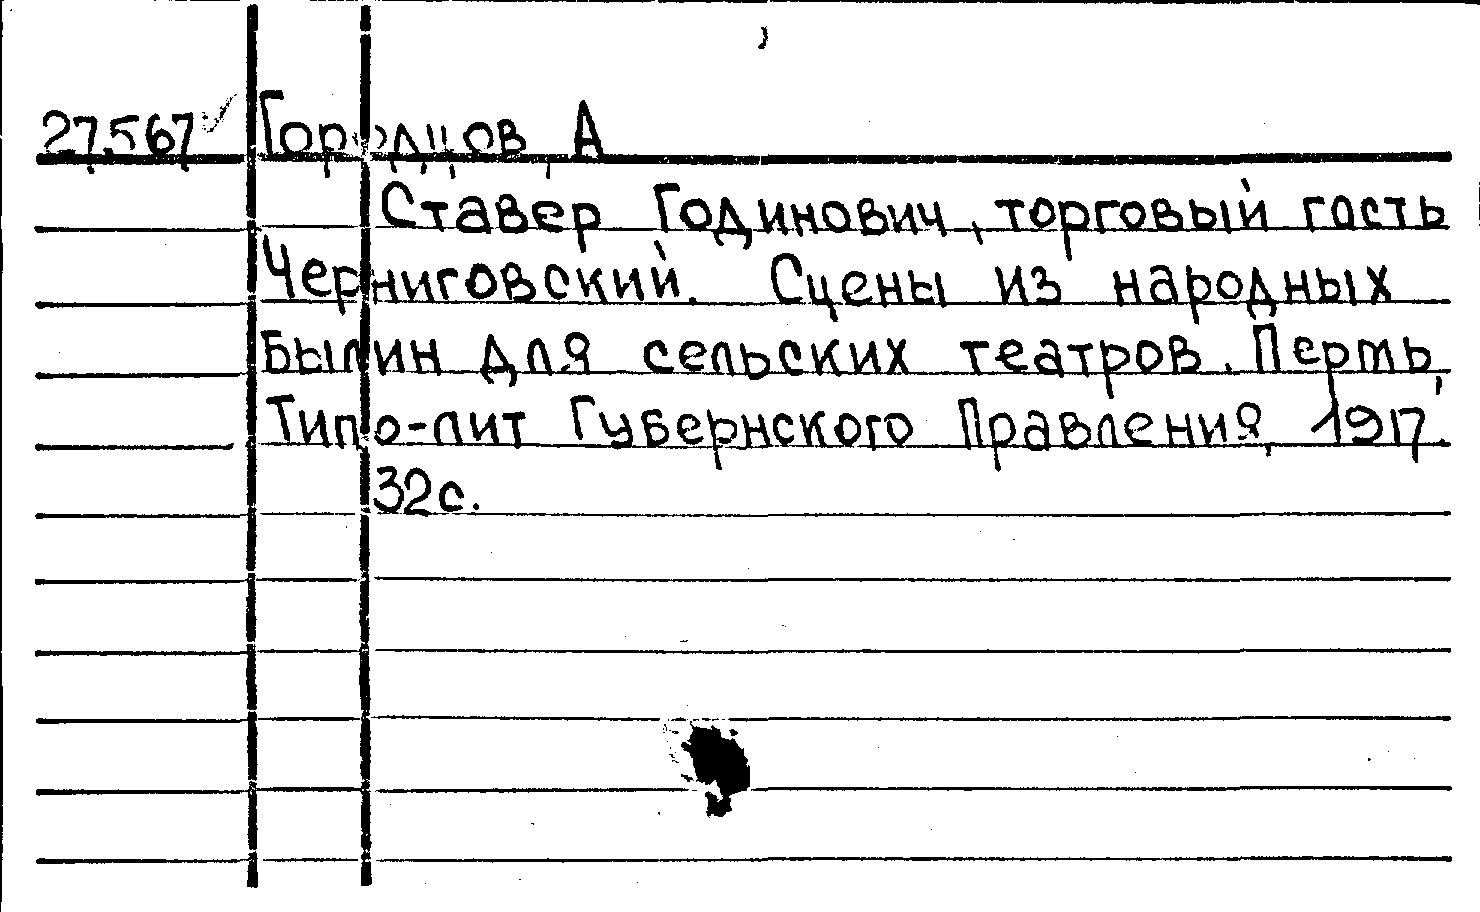 27.567 Городцов, А
Ставер Годинович, торговый гость
Черниговский. Сцены из народных
былин для сельских театров. Пермь,
Типо-лит Губернского Правления, 1917.
32с.